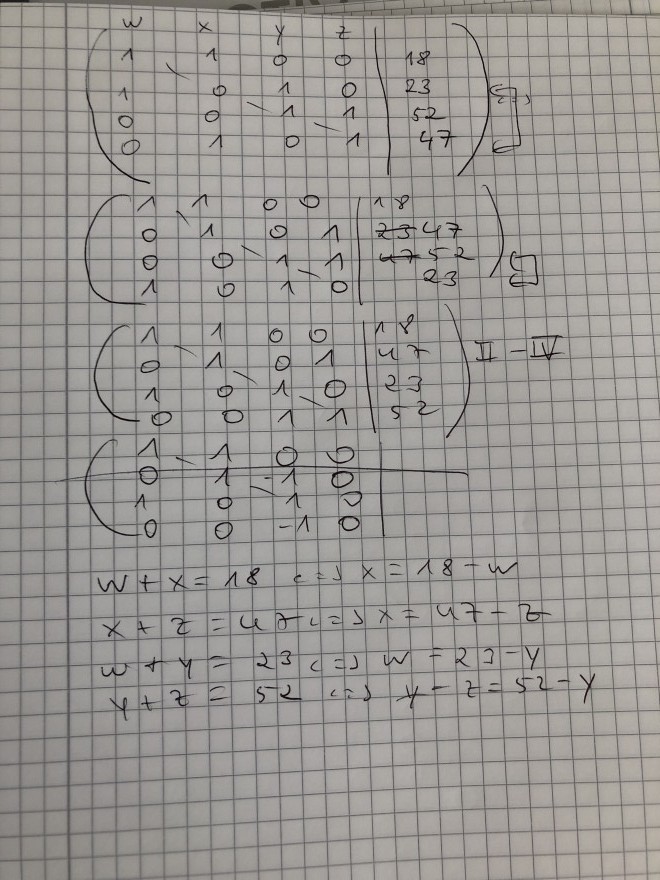 w x y z
1 1 0 0 | 18
1 0 1 0 | 23
0 0 1 1 | 52
0 1 0 1 | 47
1 1 0 0 | 18
0 1 0 1 | 23 47
0 0 1 1 | 47 52
1 0 1 0 | 23
1 1 0 0 | 18
0 1 0 1 | 47 II - IV
1 0 1 0 | 23
0 0 1 1 | 52
1 1 0 0
0 1 -1 0
1 0 1 0
0 0 -1 0
w + x = 18 <=> x = 18 - w
x + z = 47 <=> x = 47 - z
w + y = 23 <=> w = 23 - y
y + z = 52 <=> y - z = 52 - y